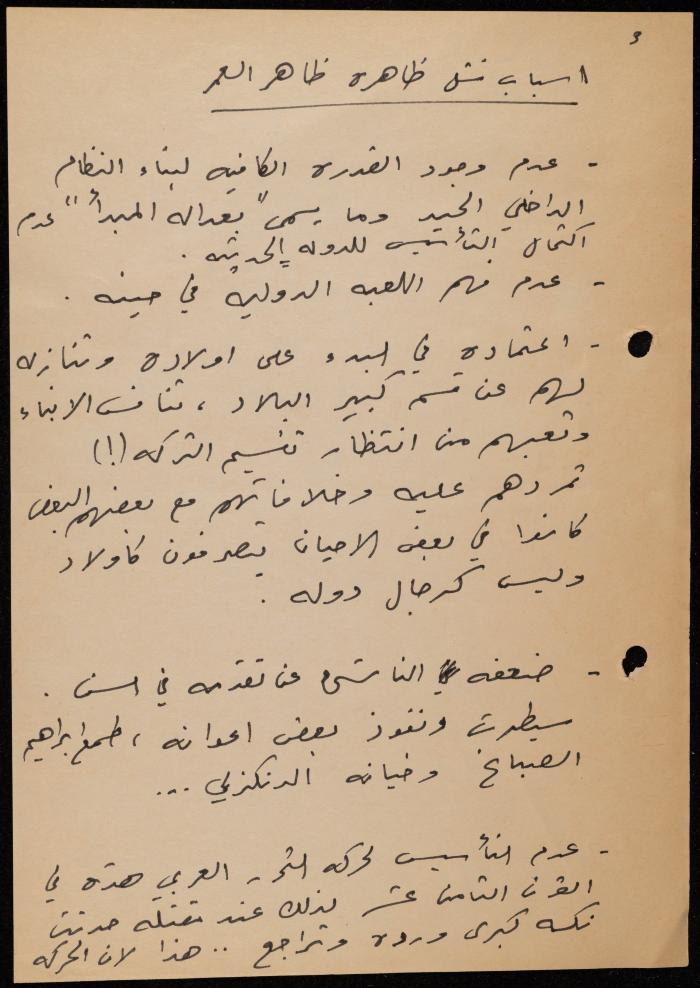 و
اسباب فشل ظاهره ظاهر العمر
- عدم وجود القدره الكافيه لبناء النظام
الداخلي الجيد وما يسمى "بعداله المبدأ" عدم
اكتمال التأسيس للدوله الحديثه .
- عدم فهم اللعبه الدوليه في حينه .
- اعتماده في البدء على اولاده وتنازله
لهم عن قسم كبير البلاد ، تنافس الابناء
وتعبهم من انتظار تقسيم التركه (!)
تمردهم عليه وخلافاتهم مع بعضهم البعض
كانوا في بعض الاحيان يتصرفون كاولاد
وليس كرجال دوله .
- ضعفه الناشئ عن تقدمه في السن .
سيطرت ونفوذ بعض اعوانه ، طمع ابراهيم
الصباغ وخيانه الدنكزلي ...
- عدم التأسيس لحركه التحرر العربي هذه في
القرن الثامن عشر لذلك عند مقتله حدثت
نكسه كبرى ورده وتراجع .. هذا لان الحركه